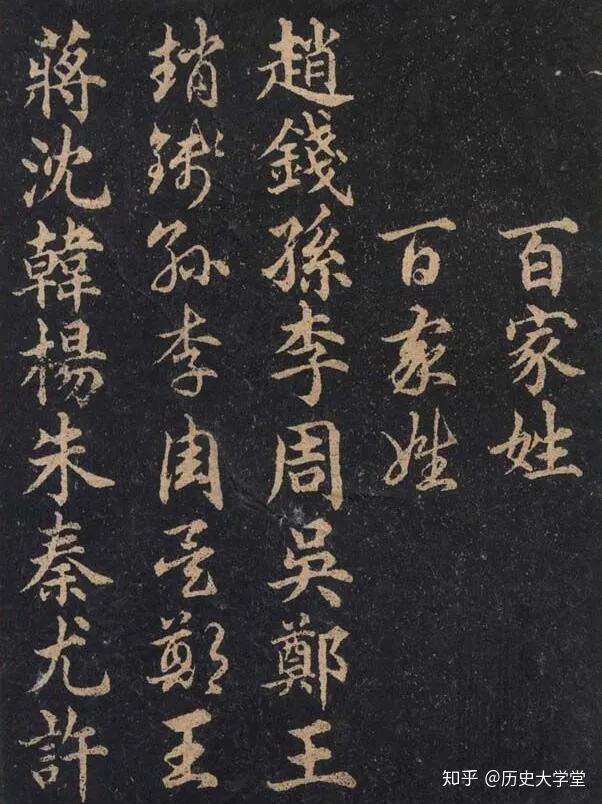 百家姓
百家姓
趙錢孫李周吳鄭王
趙錢孫李周吳鄭王
蔣沈韓楊朱秦尤許
知乎 @历史大学堂